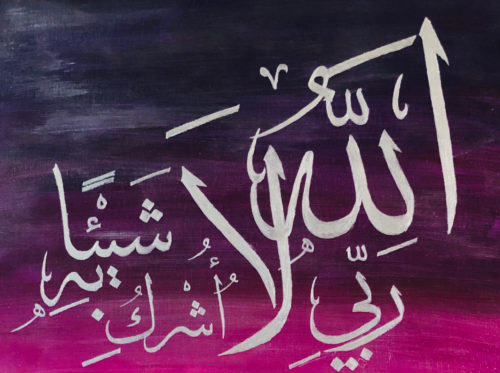 اللّٰه رَبِّي لَا أُشْرِكُ بِهِ شَيْئًا